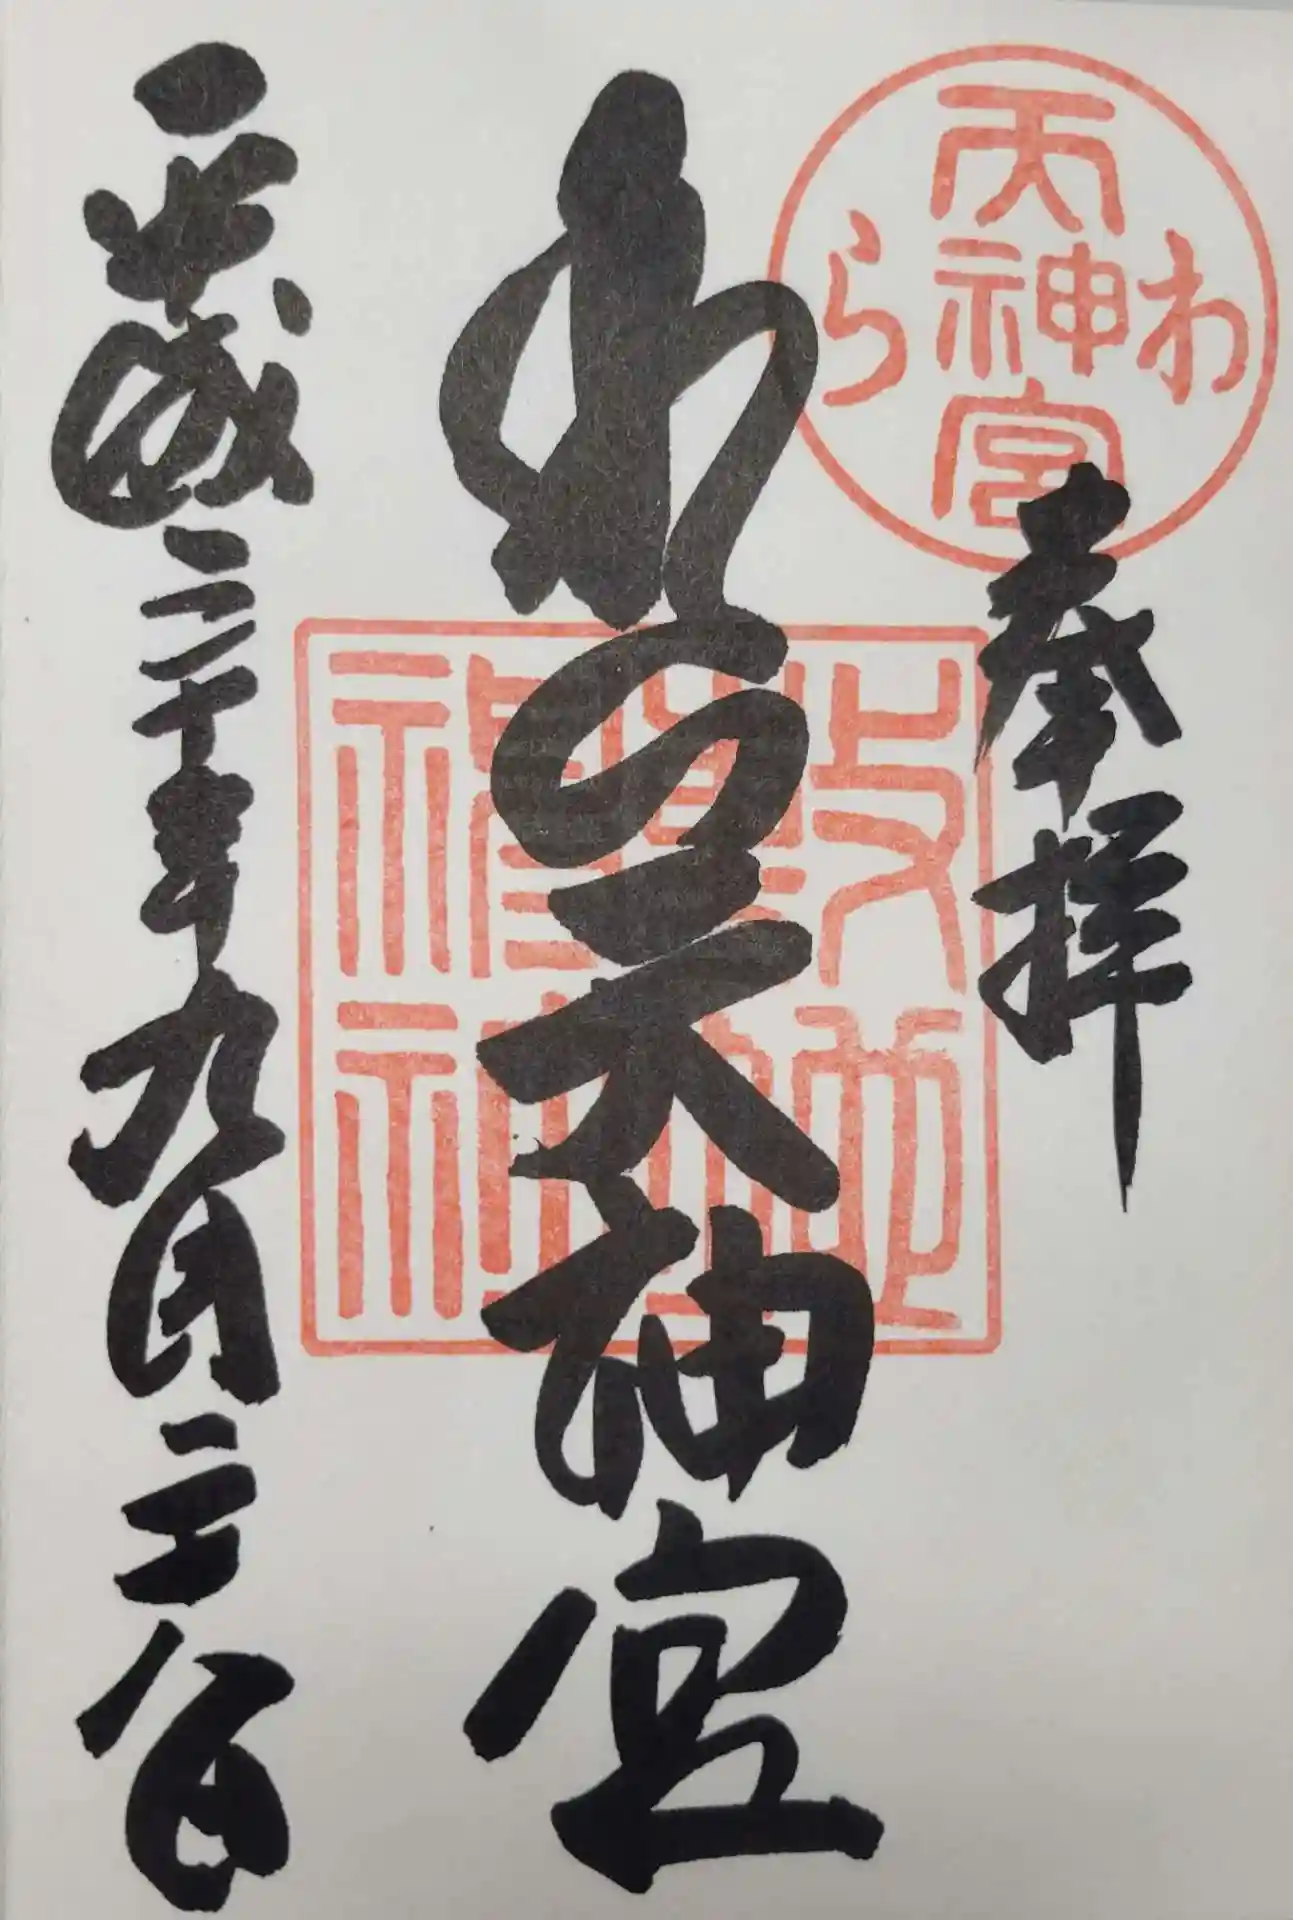 奉拝
わら
天神宮
わら天神宮
敷地
神社
平成二十年九月二十八日